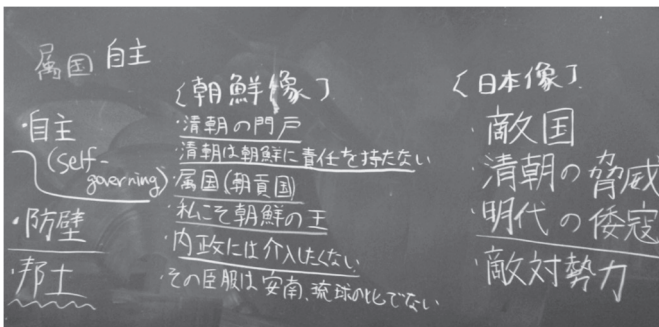 属国 自主
・自主
(self-governing)
・防壁
・邦土
〈朝鮮像〉
・清朝の門戸
・清朝は朝鮮に責任を持たない
・属国(朝貢国)
・私こそ朝鮮の王
・内政には介入したくない
・その臣服は安南、琉球の比でない
〈日本像〉
・敵国
・清朝の脅威
・明代の倭寇
・敵対勢力